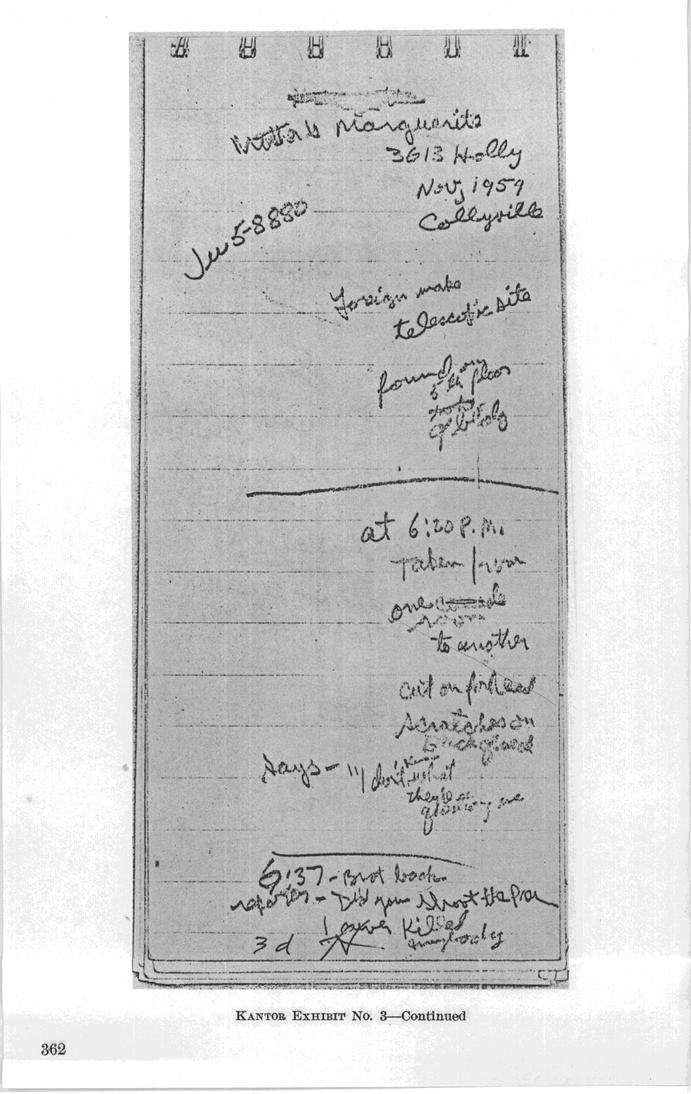 Mother's Marguerite
3613 Holly
Nov, 1959
Collyville
Je 5-8880
Foreign make
telescopic site
found on
5th floor
of bldg
at 6:20 P.M.
Taken from
one
room
to another
cut on forhead
scratches on
Says - "I don't know what
they're
me
6:37 - Brot back
reporters - Did you shoot the Pres
I never Killed
anybody
3d
KANTOR EXHIBIT No. 3—Continued
362